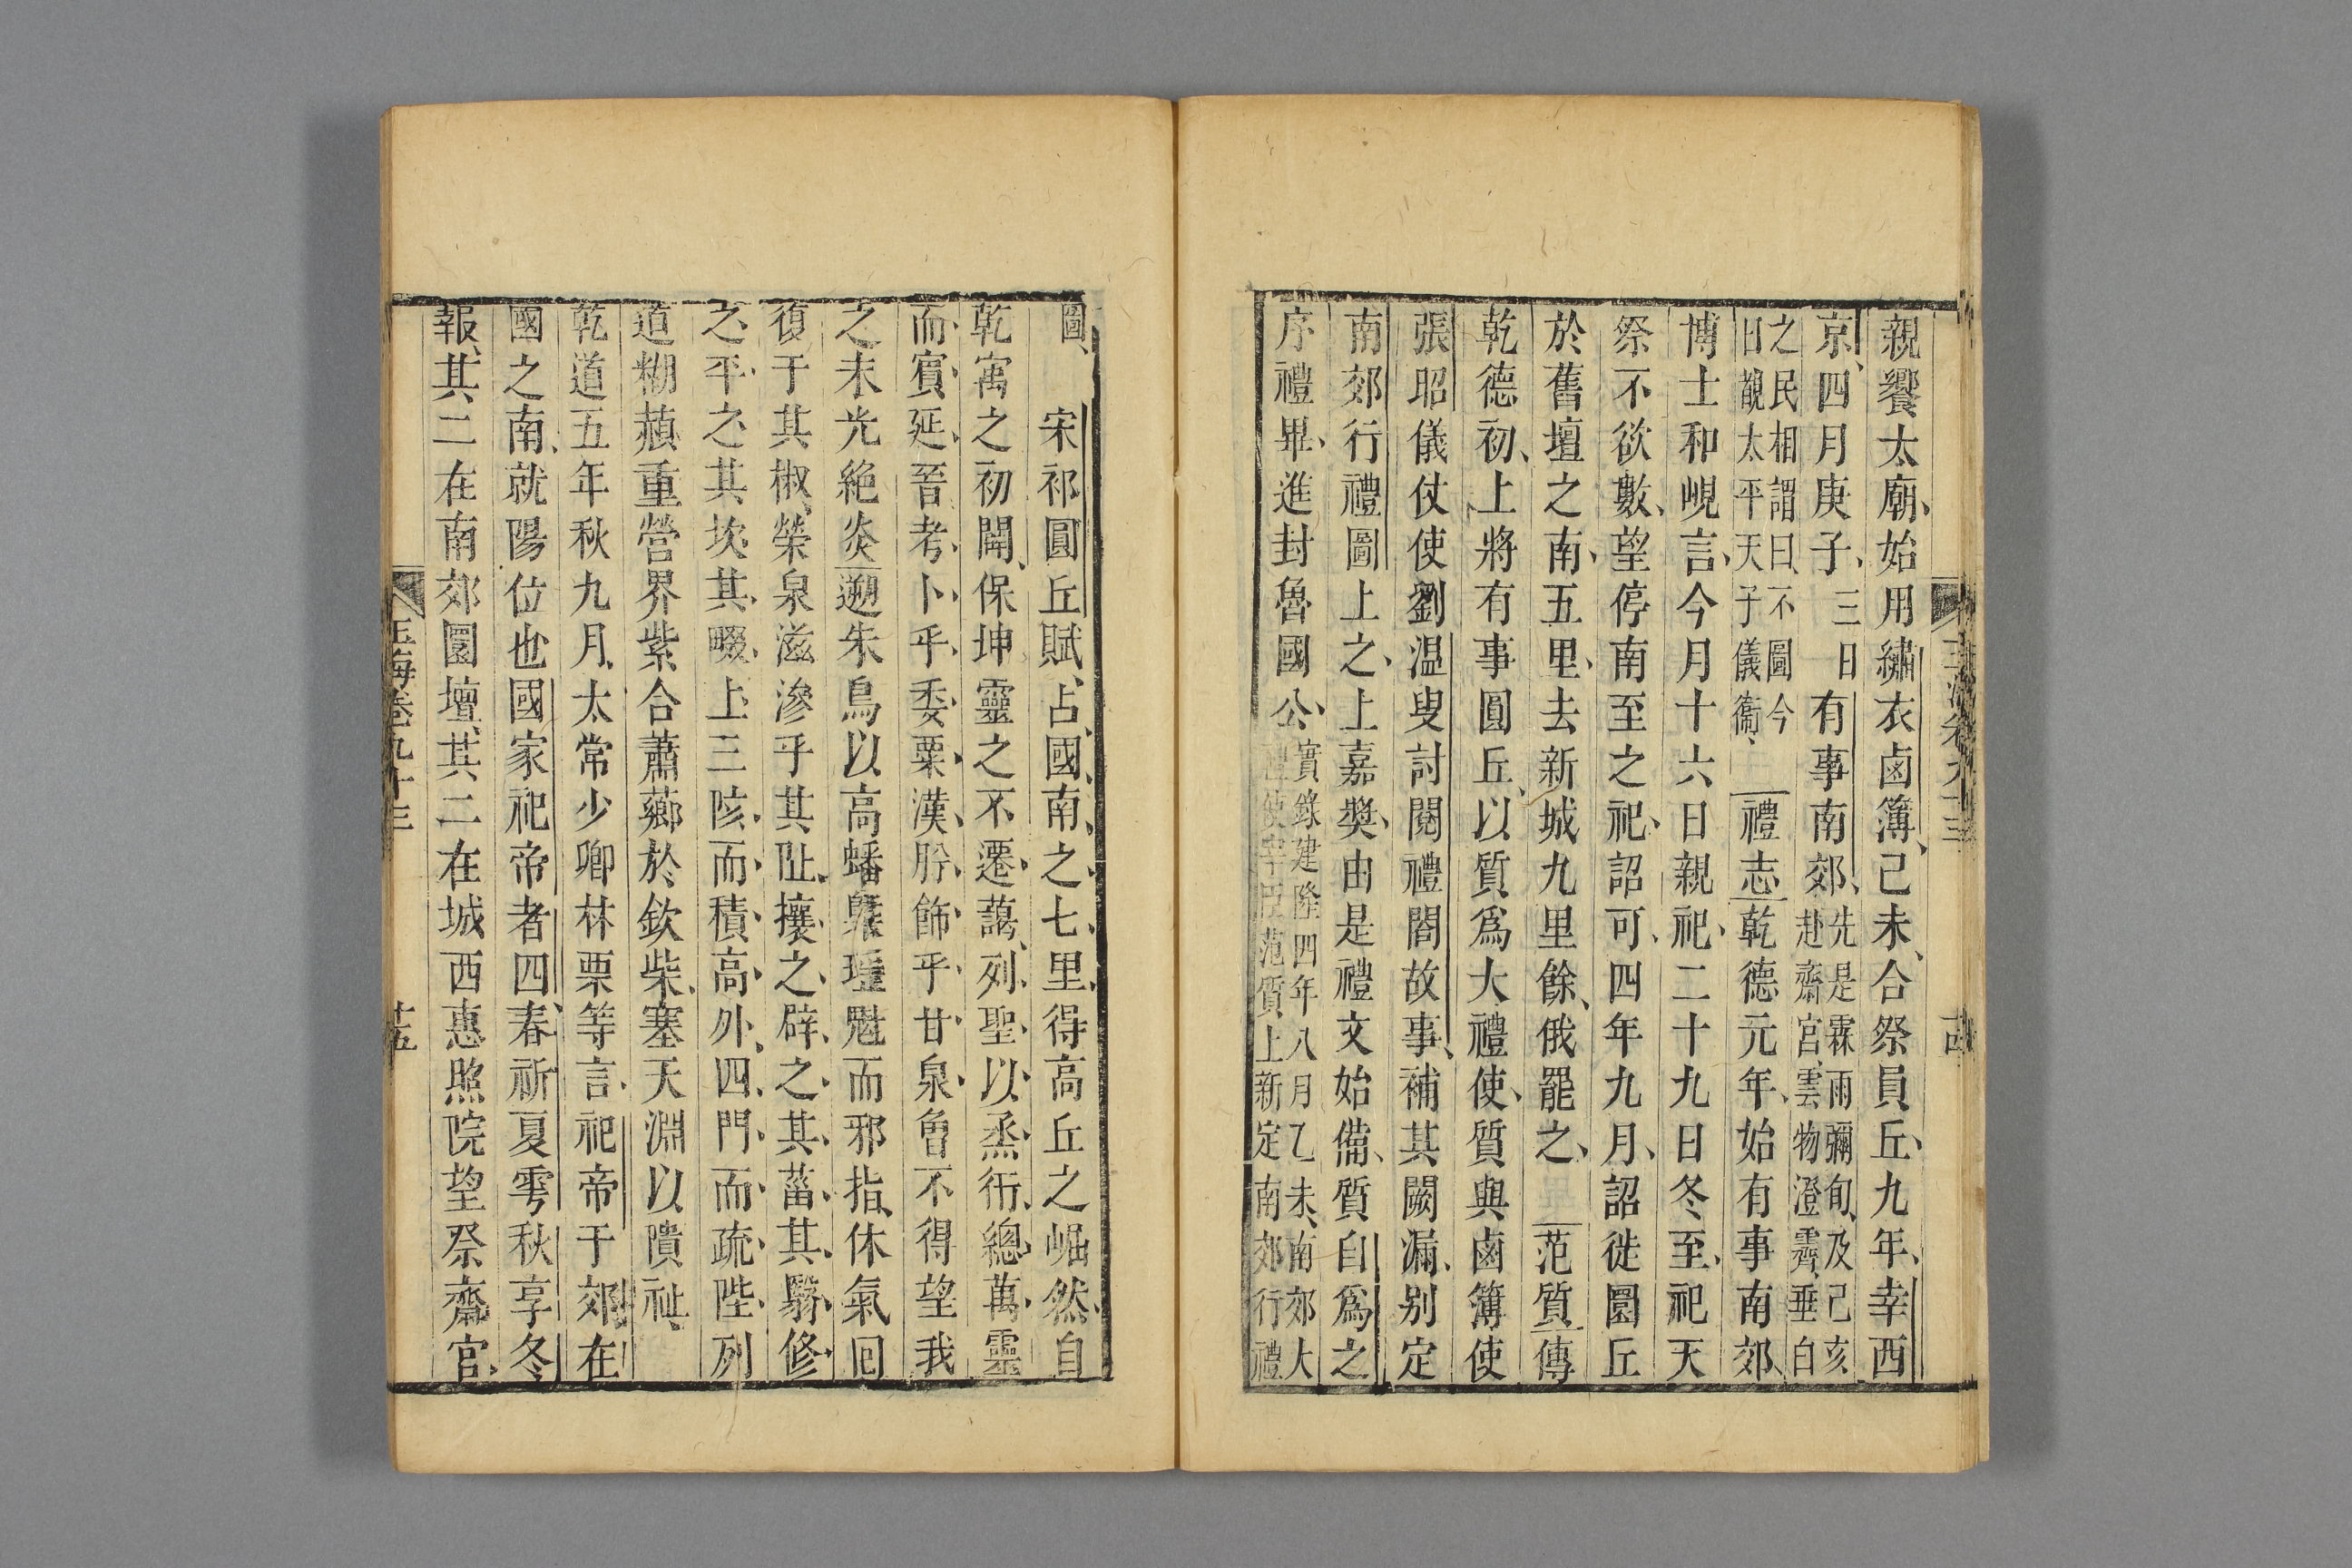 玉海卷九十三
十四
親饗太廟始用繡衣鹵簿己未合祭員丘九年幸西
京四月庚子三日有事南郊先是霖雨彌旬及己亥
赴齋宮雲物澄霽垂白
之民相謂曰不圖今
日覩太平天子儀衞
禮志乾德元年始有事南郊
博士和峴言今月十六日親祀二十九日冬至祀天
祭不欲數望停南至之祀詔可四年九月詔徙圜丘
於舊壇之南五里去新城九里餘俄罷之范質傳
乾德初上將有事圓丘以質爲大禮使質與鹵簿使
張昭儀仗使劉温叟討閱禮閤故事補其闕漏别定
南郊行禮圖上之上嘉奬由是禮文始備質自爲之
序禮畢進封魯國公實錄建隆四年八月乙未南郊大
禮使宰臣范質上新定南郊行禮
圖宋祁圓丘賦占國南之七里得高丘之崛然自
乾寓之初闢保坤靈之不遷藹列聖以烝衎總萬靈
而賓延晉考卜乎委粟漢肸飾乎甘泉魯不得望我
之末光絶炎遡朱鳥以高蟠㬥璿魁而邪指休氣回
復于其椒榮泉滋滲乎其阯攘之辟之其菑其翳修
之平之其坎其畷上三陔而積高外四門而疏陛列
道糊赬重營界紫合蕭薌於欽柴塞天淵以隤祉
乾道五年秋九月太常少卿林栗等言祀帝于郊在
國之南就陽位也國家祀帝者四春祈夏雩秋享冬
報其二在南郊圜壇其二在城西惠照院望祭齋宫
玉海卷九十三
十五